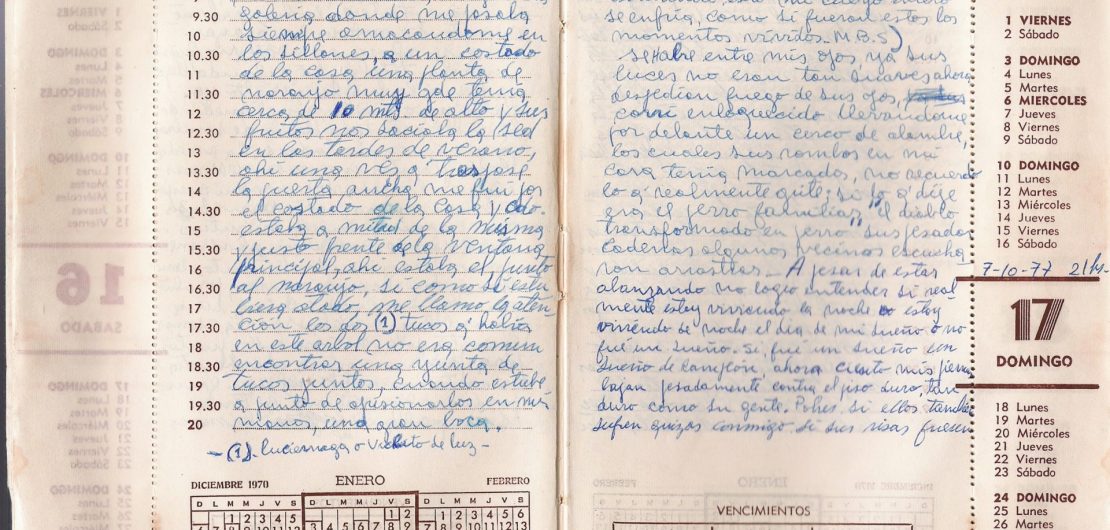 9.30 galeria donde me posaba
10 siempre amacandome en
10.30 los sillones, a un costado
11 de la casa una planta de
11.30 naranjo muy gde tenia
12 cerca de 10 mts de alto y sus
12.30 frutos nos saciaba la sed
13 en las tardes de verano,
13.30 ahi una ves a tras
14 la puerta ancha me fui por
14.30 el costado de la casa y cdo.
15 estaba a mitad de la misma
15.30 y justo frente a la ventana
16 principal, ahi estaba el, junto
16.30 al naranjo, si como si estu
17 biera atado, me llamo la aten
17.30 cion los dos (1) tucos q' habia
18 en este arbol no era comun
18.30 encontrar una yunta de
19 tucos juntos, cuando estube
19.30 a punto de apresionarlos en mis
20 manos, una gran boca.
(1). luciernaga o vichito de luz -
DICIEMBRE 1970
ENERO
FEBRERO
D L M M J V S
D L M M J V S
D L M M J V S
1 2 3 4 5
1 2
1 2 3 4 5 6
6 7 8 9 10 11 12
3 4 5 6 7 8 9
7 8 9 10 11 12 13
se enfria, como si fueran estos los
momentos vividos M.B.S)
se habre entre mis ojos, ya sus
luces no eran tan suaves ahora
despedian fuego de sus ojos,
corri enloquecido llevandome
por delante un cerco de alambre,
los cuales sus rombos en mi
cara tenia marcados, no recuerdo
lo q' realmente grite, si lo q' dije
era el perro familiar, "el diablo
transformado en perro" sus pesadas
cadenas algunos vecinos escucha
ron arrastrar. - A pesar de estar
alcanzando no logro entender si real
mente estoy viviendo la noche o estoy
viviendo de noche el dia de mi sueño o no
fué un sueño. Si, fué un sueño un
sueño de campeon, ahora cuento mis piernas
bajan pesadamente contra el piso duro, tan
duro como su gente. Pobres, si ellos tambien
sufren quizas conmigo. Si sus risas fueran
1 VIERNES
2 Sábado
3 DOMINGO
4 Lunes
5 Martes
6 MIERCOLES
7 Jueves
8 Viernes
9 Sábado
10 DOMINGO
11 Lunes
12 Martes
13 Miércoles
14 Jueves
15 Viernes
16 Sábado
7-10-77 21 hs.
17
DOMINGO
18 Lunes
19 Martes
20 Miércoles
21 Jueves
22 Viernes
23 Sábado
24 DOMINGO
25 Lunes
26 Martes
VENCIMIENTOS